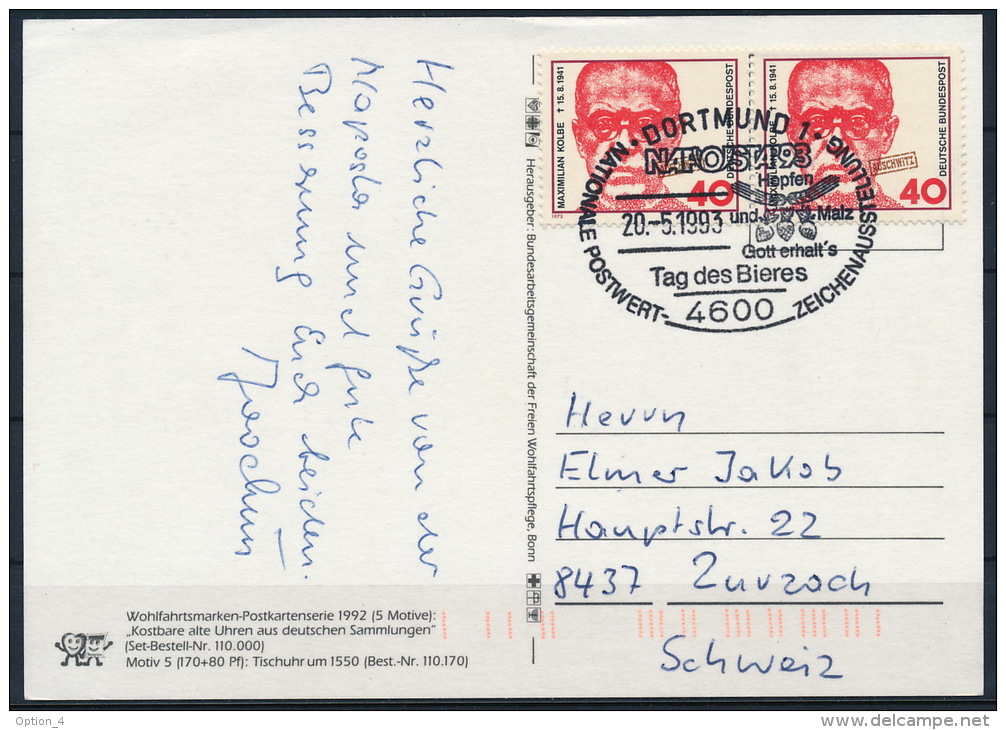 Herzliche Grüße von der
Naposta und gute
Besserung Euch beiden.
Joachim
Herausgeber: Bundesarbeitsgemeinschaft der Freien Wohlfahrtspflege, Bonn
MAXIMILIAN KOLBE † 15.8.1941
DEUTSCHE BUNDESPOST
40
1973
MAXIMILIAN KOLBE † 15.8.1941
AUSCHWITZ
DEUTSCHE BUNDESPOST
40
DORTMUND 1
NATIONALE POSTWERT-ZEICHENAUSSTELLUNG
NAPOSTA '93
20.-5.1993
Hopfen
und Malz
Gott erhalt's
Tag des Bieres
4600
Herrn
Elmer Jakob
Hauptstr. 22
8437 Zurzach
Schweiz
Wohlfahrtsmarken-Postkartenserie 1992 (5 Motive):
„Kostbare alte Uhren aus deutschen Sammlungen“
(Set-Bestell-Nr. 110.000)
Motiv 5 (170+80 Pf): Tischuhr um 1550 (Best.-Nr. 110.170)
Option_4
delcampe.net